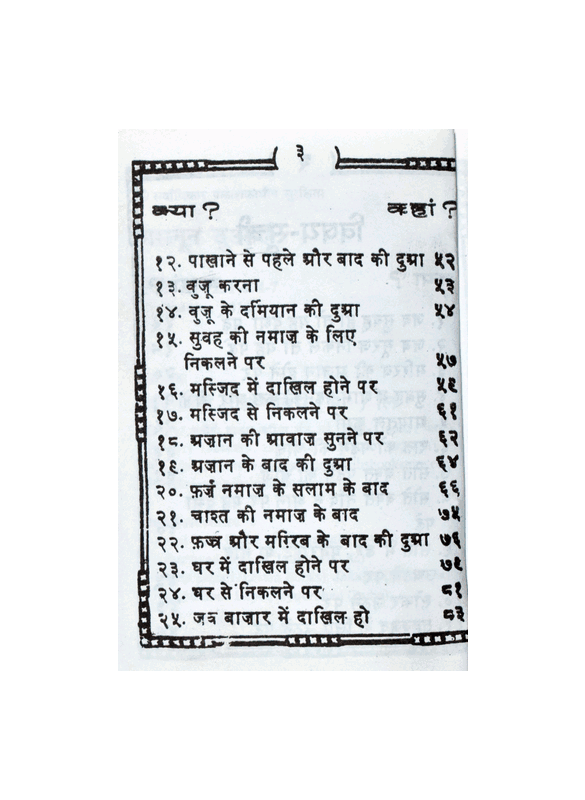 ( ३ )
क्या ? कहां ?
१२. पाखाने से पहले और बाद की दुआ ५२
१३. वुज़ू करना ५३
१४. वुज़ू के दर्मियान की दुआ ५४
१५. सुबह की नमाज़ के लिए
निकलने पर ५७
१६. मस्जिद में दाख़िल होने पर ५९
१७. मस्जिद से निकलने पर ६१
१८. अज़ान की आवाज़ सुनने पर ६२
१९. अज़ान के बाद की दुआ ६४
२०. फ़र्ज़ नमाज़ के सलाम के बाद ६६
२१. चाश्त की नमाज़ के बाद ७५
२२. फ़ज्र और मग़्रिब के बाद की दुआ ७६
२३. घर में दाख़िल होने पर ७९
२४. घर से निकलने पर ८१
२५. जब बाज़ार में दाख़िल हो ८३